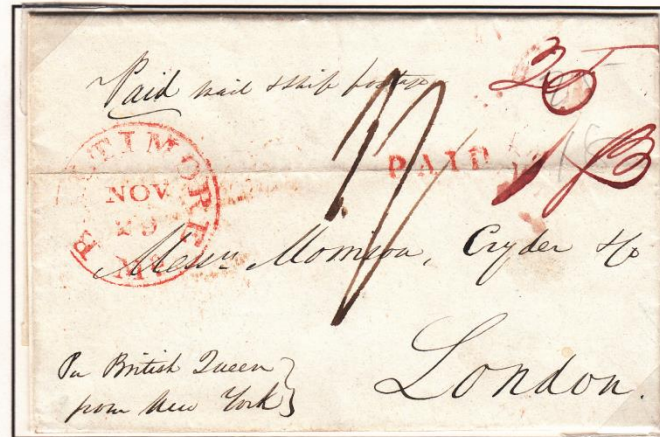 Paid mail & ship postage
25
PAID
BALTIMORE MD
NOV
29
Messrs Morrison, Cryder & Co
London.
Per British Queen
from New York